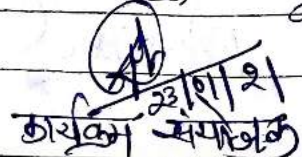 23/9/21
कार्यक्रम संयोजक